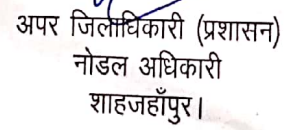 अपर जिलाधिकारी (प्रशासन)
नोडल अधिकारी
शाहजहाँपुर।